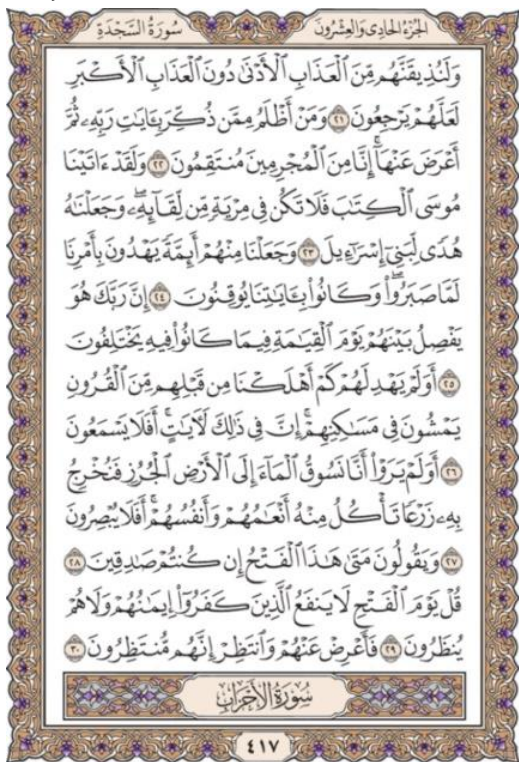 الجُزْءُ الحَادِى وَالعِشْرُونَ سُورَةُ السَّجْدَةِ
وَلَنُذِيقَنَّهُم مِّنَ ٱلْعَذَابِ ٱلْأَدْنَىٰ دُونَ ٱلْعَذَابِ ٱلْأَكْبَرِ
لَعَلَّهُمْ يَرْجِعُونَ ٢١ وَمَنْ أَظْلَمُ مِمَّن ذُكِّرَ بِـَٔايَٰتِ رَبِّهِۦ ثُمَّ
أَعْرَضَ عَنْهَآۚ إِنَّا مِنَ ٱلْمُجْرِمِينَ مُنتَقِمُونَ ٢٢ وَلَقَدْ ءَاتَيْنَا
مُوسَى ٱلْكِتَٰبَ فَلَا تَكُن فِى مِرْيَةٍ مِّن لِّقَآئِهِۦۖ وَجَعَلْنَٰهُ
هُدًى لِّبَنِىٓ إِسْرَٰٓءِيلَ ٢٣ وَجَعَلْنَا مِنْهُمْ أَئِمَّةً يَهْدُونَ بِأَمْرِنَا
لَمَّا صَبَرُواْۖ وَكَانُواْ بِـَٔايَٰتِنَا يُوقِنُونَ ٢٤ إِنَّ رَبَّكَ هُوَ
يَفْصِلُ بَيْنَهُمْ يَوْمَ ٱلْقِيَٰمَةِ فِيمَا كَانُواْ فِيهِ يَخْتَلِفُونَ
٢٥ أَوَلَمْ يَهْدِ لَهُمْ كَمْ أَهْلَكْنَا مِن قَبْلِهِم مِّنَ ٱلْقُرُونِ
يَمْشُونَ فِى مَسَٰكِنِهِمْۚ إِنَّ فِى ذَٰلِكَ لَأَيَٰتٍۚ أَفَلَا يَسْمَعُونَ
٢٦ أَوَلَمْ يَرَوْاْ أَنَّا نَسُوقُ ٱلْمَآءَ إِلَى ٱلْأَرْضِ ٱلْجُرُزِ فَنُخْرِجُ
بِهِۦ زَرْعًا تَأْكُلُ مِنْهُ أَنْعَٰمُهُمْ وَأَنفُسُهُمْۚ أَفَلَا يُبْصِرُونَ
٢٧ وَيَقُولُونَ مَتَىٰ هَٰذَا ٱلْفَتْحُ إِن كُنتُمْ صَٰدِقِينَ ٢٨
قُلْ يَوْمَ ٱلْفَتْحِ لَا يَنفَعُ ٱلَّذِينَ كَفَرُوٓاْ إِيمَٰنُهُمْ وَلَا هُمْ
يُنظَرُونَ ٢٩ فَأَعْرِضْ عَنْهُمْ وَٱنتَظِرْ إِنَّهُم مُّنتَظِرُونَ ٣٠
سُورَةُ الأَحْزَابِ
٤١٧